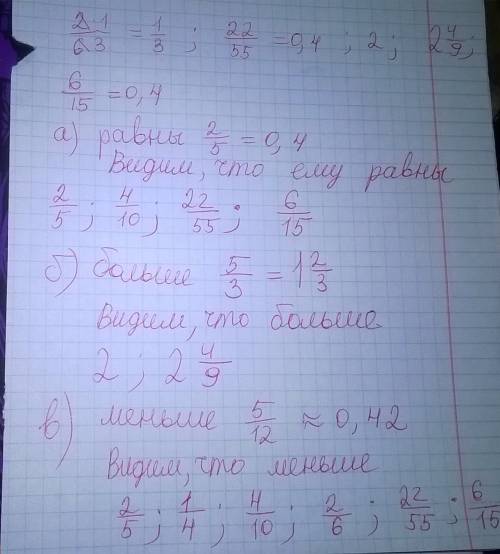 2̶ 1/6̶ 3 = 1/3 ; 22/55 = 0,4 ; 2 ; 2 4/9 ;
6/15 = 0,4
а) равны 2/5 = 0,4
Видим, что ему равны
2/5 ; 4/10 ; 22/55 ; 6/15
б) больше 5/3 = 1 2/3
Видим, что больше
2 ; 2 4/9
в) меньше 5/12 ≈ 0,42
Видим, что меньше
2/5 ; 1/4 ; 4/10 ; 2/6 ; 22/55 ; 6/15